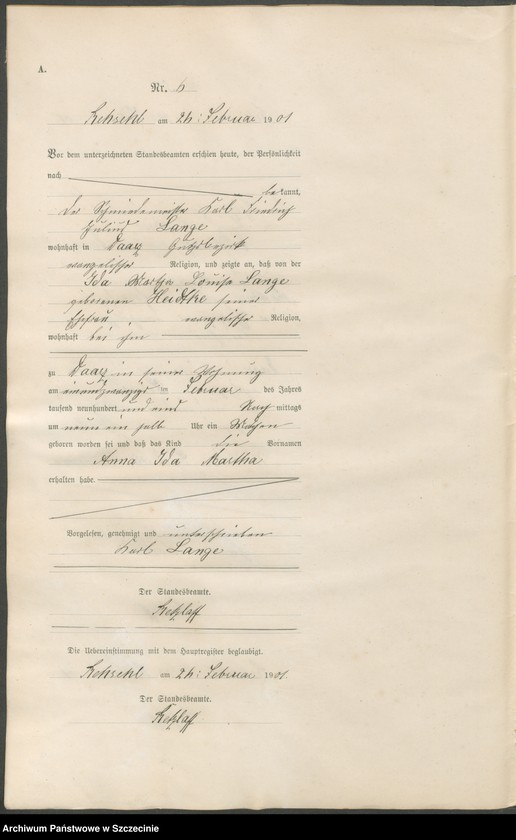 A.
Nr. 6
am 26. Februar 1901
Vor dem unterzeichneten Standesbeamten erschien heute, der Persönlichkeit
nach
bekannt,
der Schmiedemeister Karl Friedrich
Julius Lange
wohnhaft in Daarz Gutsbezirk
evangelischer Religion, und zeigte an, daß von der
Ida Martha Louise Lange
geborenen Heidtke seiner
Ehefrau evangelischer Religion,
wohnhaft bei ihm
zu Daarz in seiner Wohnung
am einundzwanzigsten Februar des Jahres
tausend neunhundert und eins Nachmittags
um neun ein halb Uhr ein Mädchen
geboren worden sei und daß das Kind die Vornamen
Anna Ida Martha
erhalten habe.
Vorgelesen, genehmigt und unterschrieben
Karl Lange
Der Standesbeamte.
Die Uebereinstimmung mit dem Hauptregister beglaubigt.
am 26. Februar 1901
Der Standesbeamte.
Archiwum Państwowe w Szczecinie